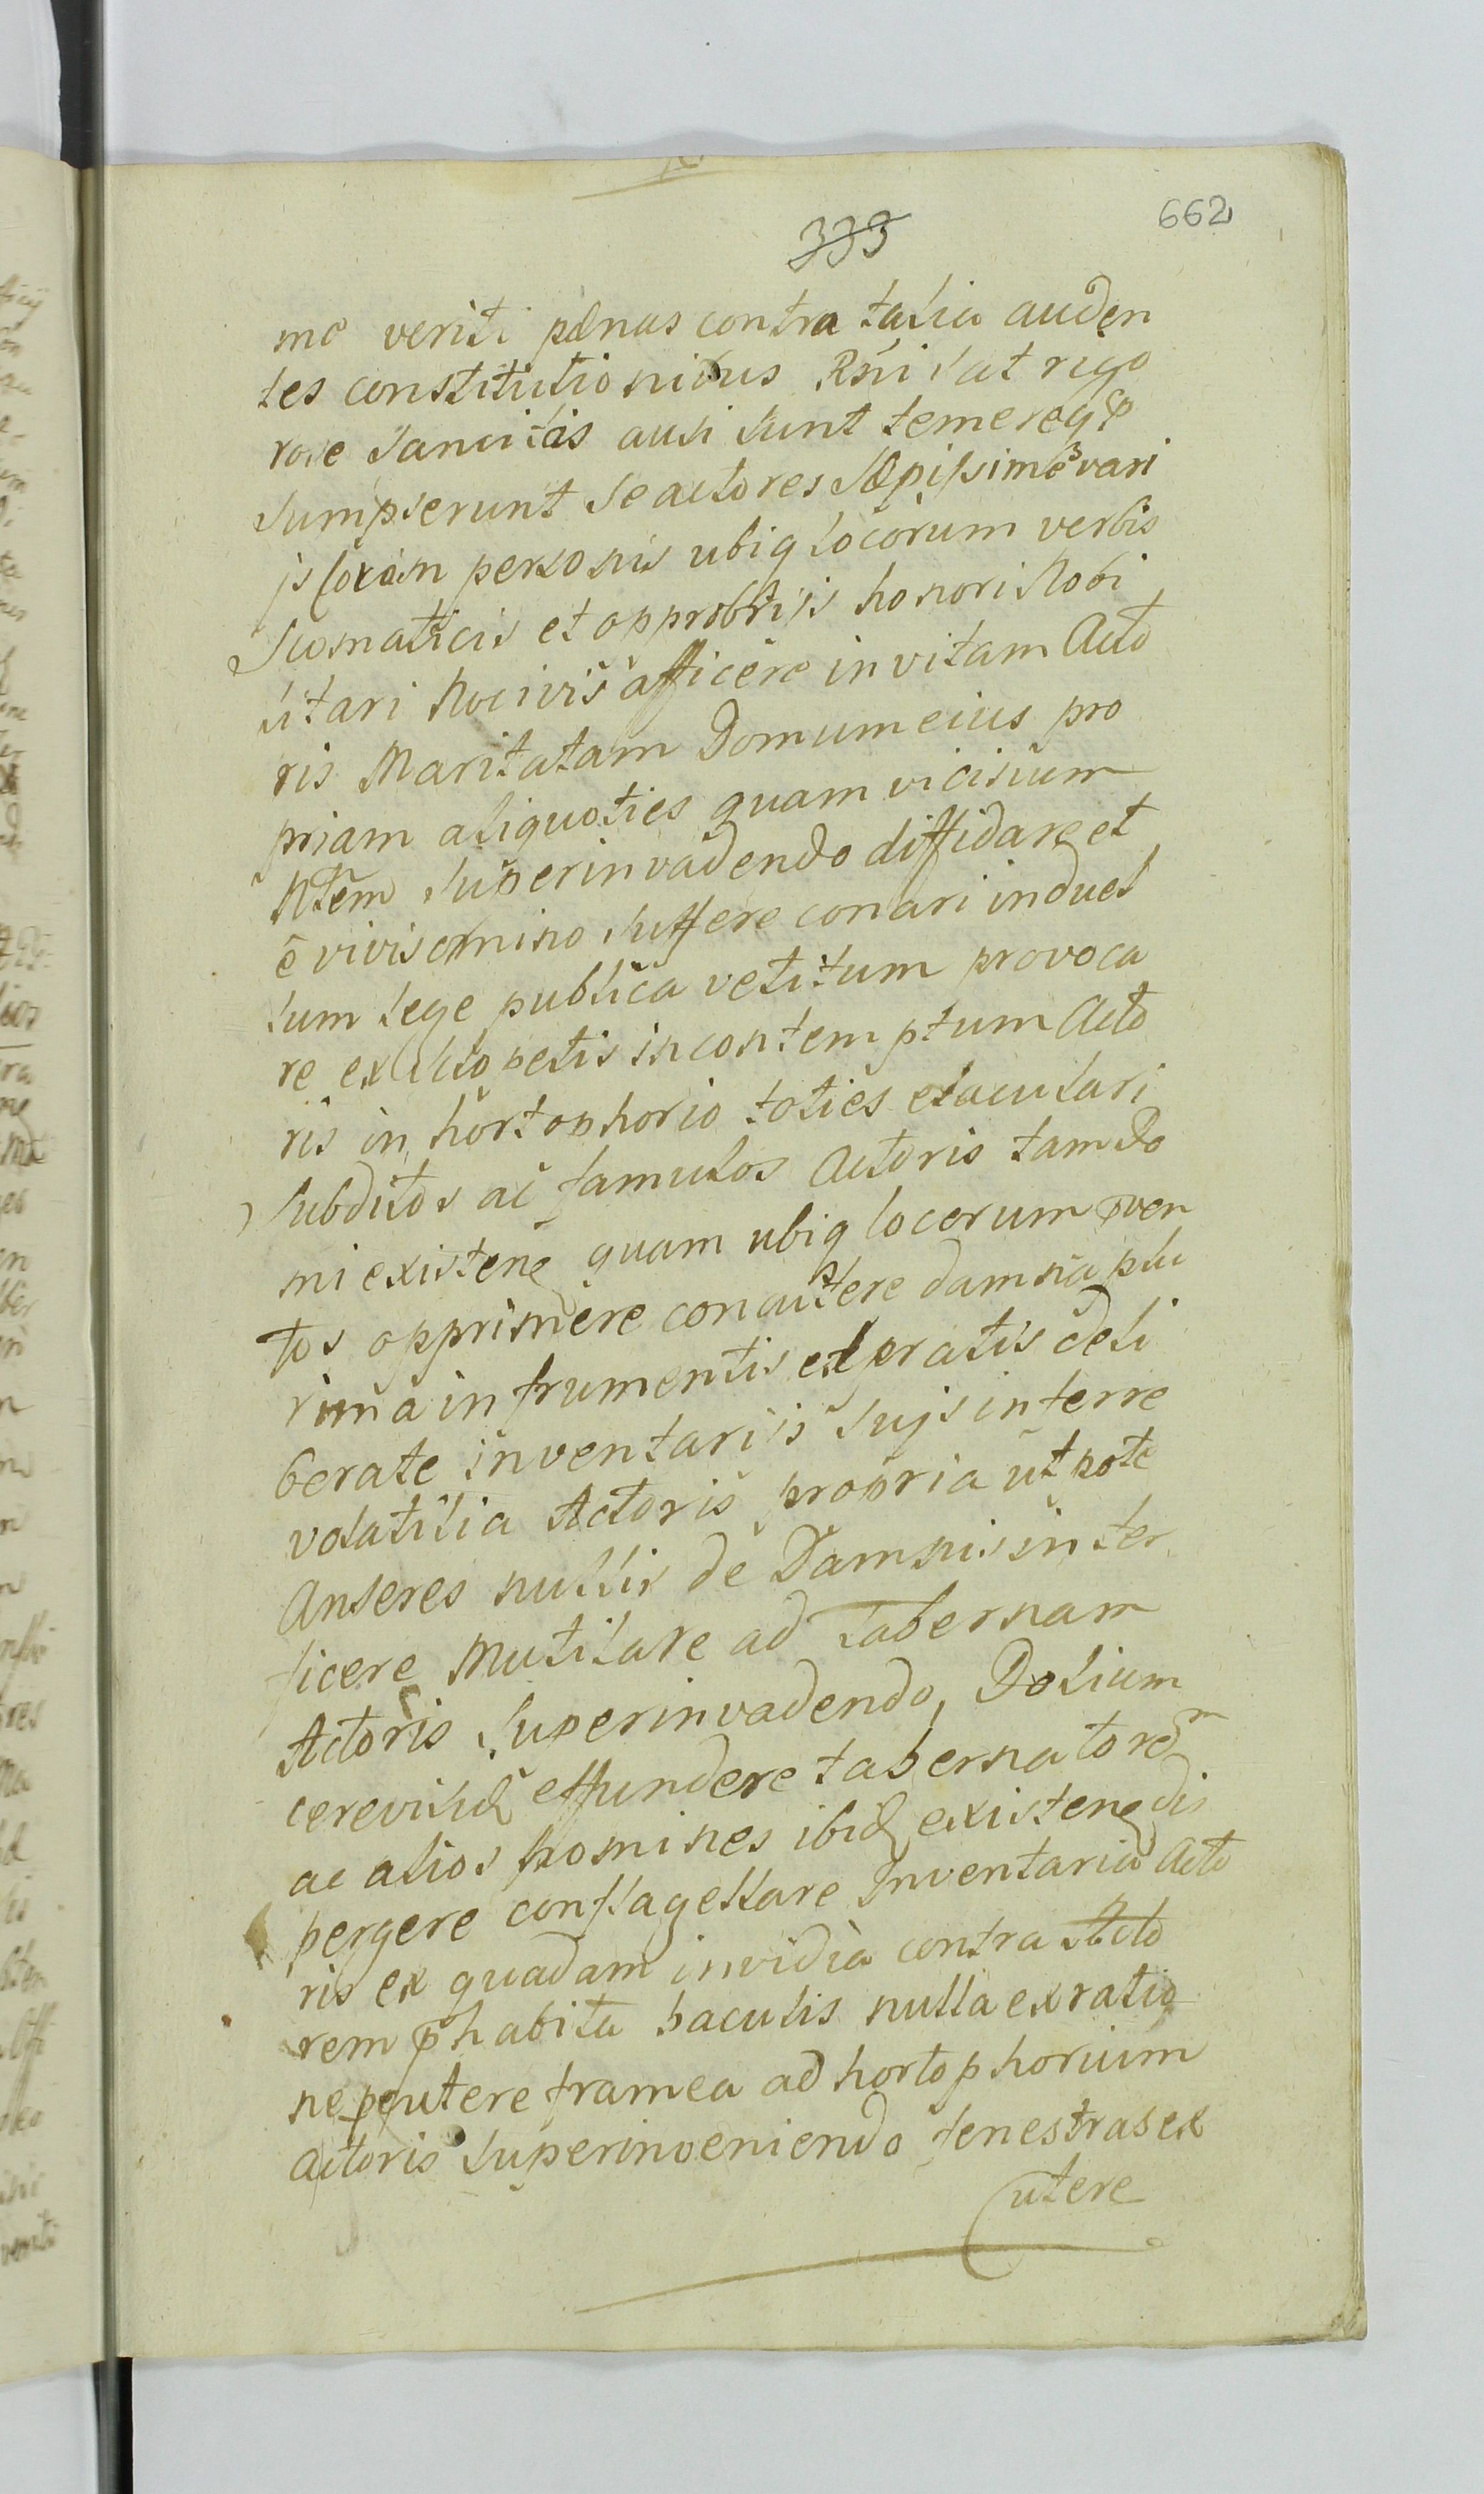 662
333
me veriti pænas contra talia auden
tes constitutionibus Rñi sat rigo
rose sancitis ausi sunt temereq̃ p̃
sumpserunt se actores sæpissime vari
js coram personis ubiq locorum verbis
scomaticis et opprobrijs honori Nobi
litari Nocivis afficere invitam Acto
ris Maritatam Domum eius pro
priam aliquoties quam vicisium
Ntem superinvadendo diffidare et
e vivis omnino suffere conari in duel
lum lege publica vetitum provoca
re ex sclopetis in contemptum Acto
ris in hortophorio toties eiaculari
subditos ac famulos Actoris tam do
mi existeñ quam ubiq locorum p̃ven
tos opprimere concutere damna plu
rima in frumentis et pratis deli
berate inventarijs sujs inferre
volatilia Actoris propria ut pote
Anseres nullis de Damnis inter
ficere Mutilare ad Tabernam
Actoris superinvadendo, Dolium
cerevisiæ effundere tabernatorem
ac alios homines ibid existeñ dis
pergere conflagellare Inventaria Acto
ris ex quadam invidia contra Acto
rem p̃habita baculis nulla ex ratio
ne pcutere framea ad hortophorium
actoris superinveniendo fenestras ex
cutere